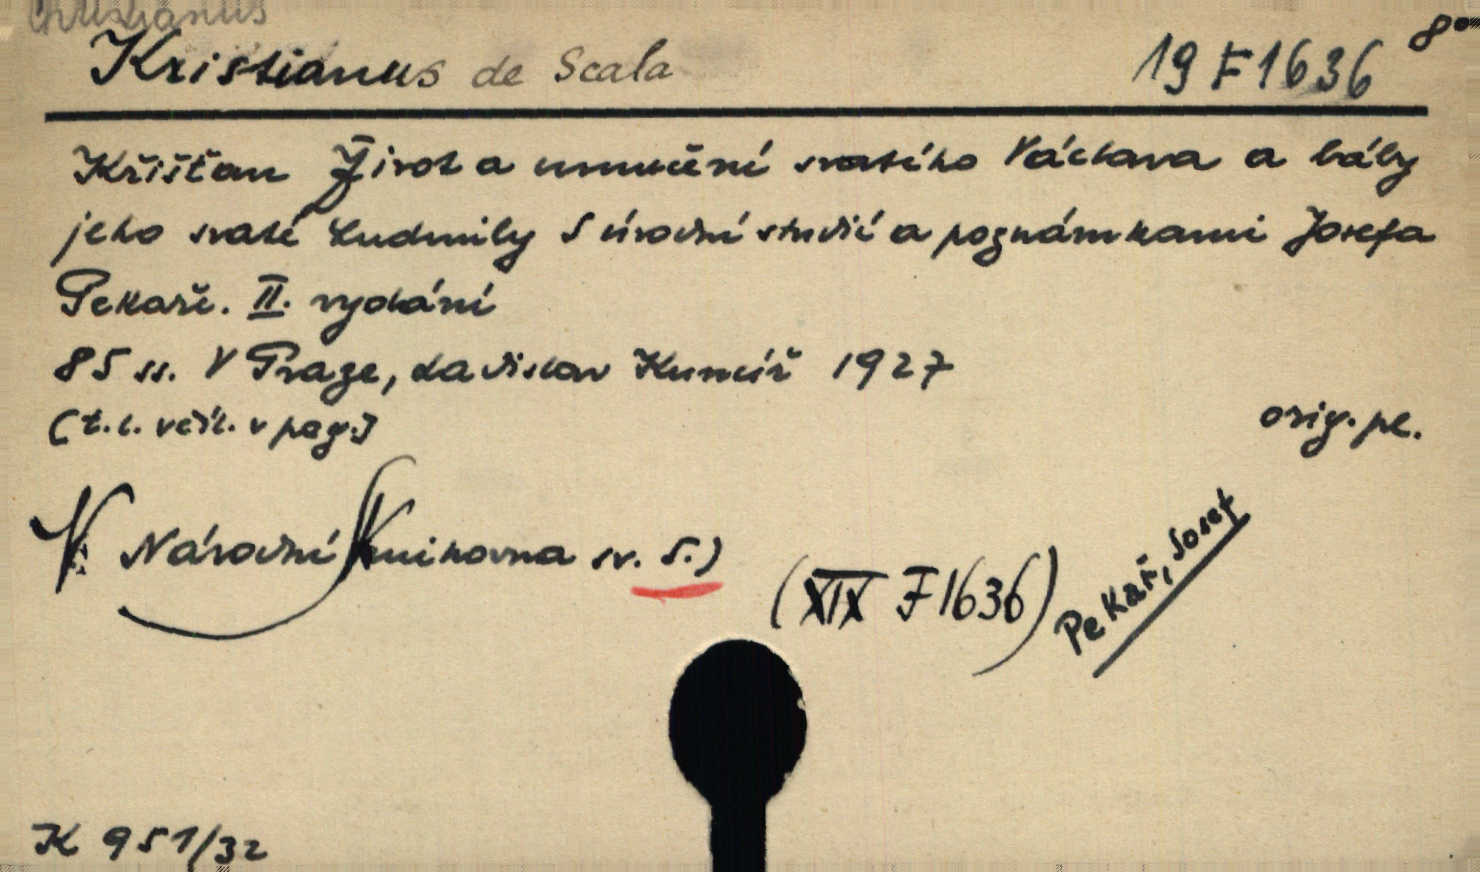 Christianus
Kristianus de Scala 19 F 1636 8°
Křišťan Život a umučení svatého Václava a báby
jeho svaté Ludmily S úvodní studií a poznámkami Josefa
Pekaře. II. vydání
85 ss. V Praze, Ladislav Kuncíř 1927
(t. l. včít. v pag.) orig. pl.
Národní Knihovna sv. 5.)
(XIX F 1636)
Pekař, Josef
K 951/32